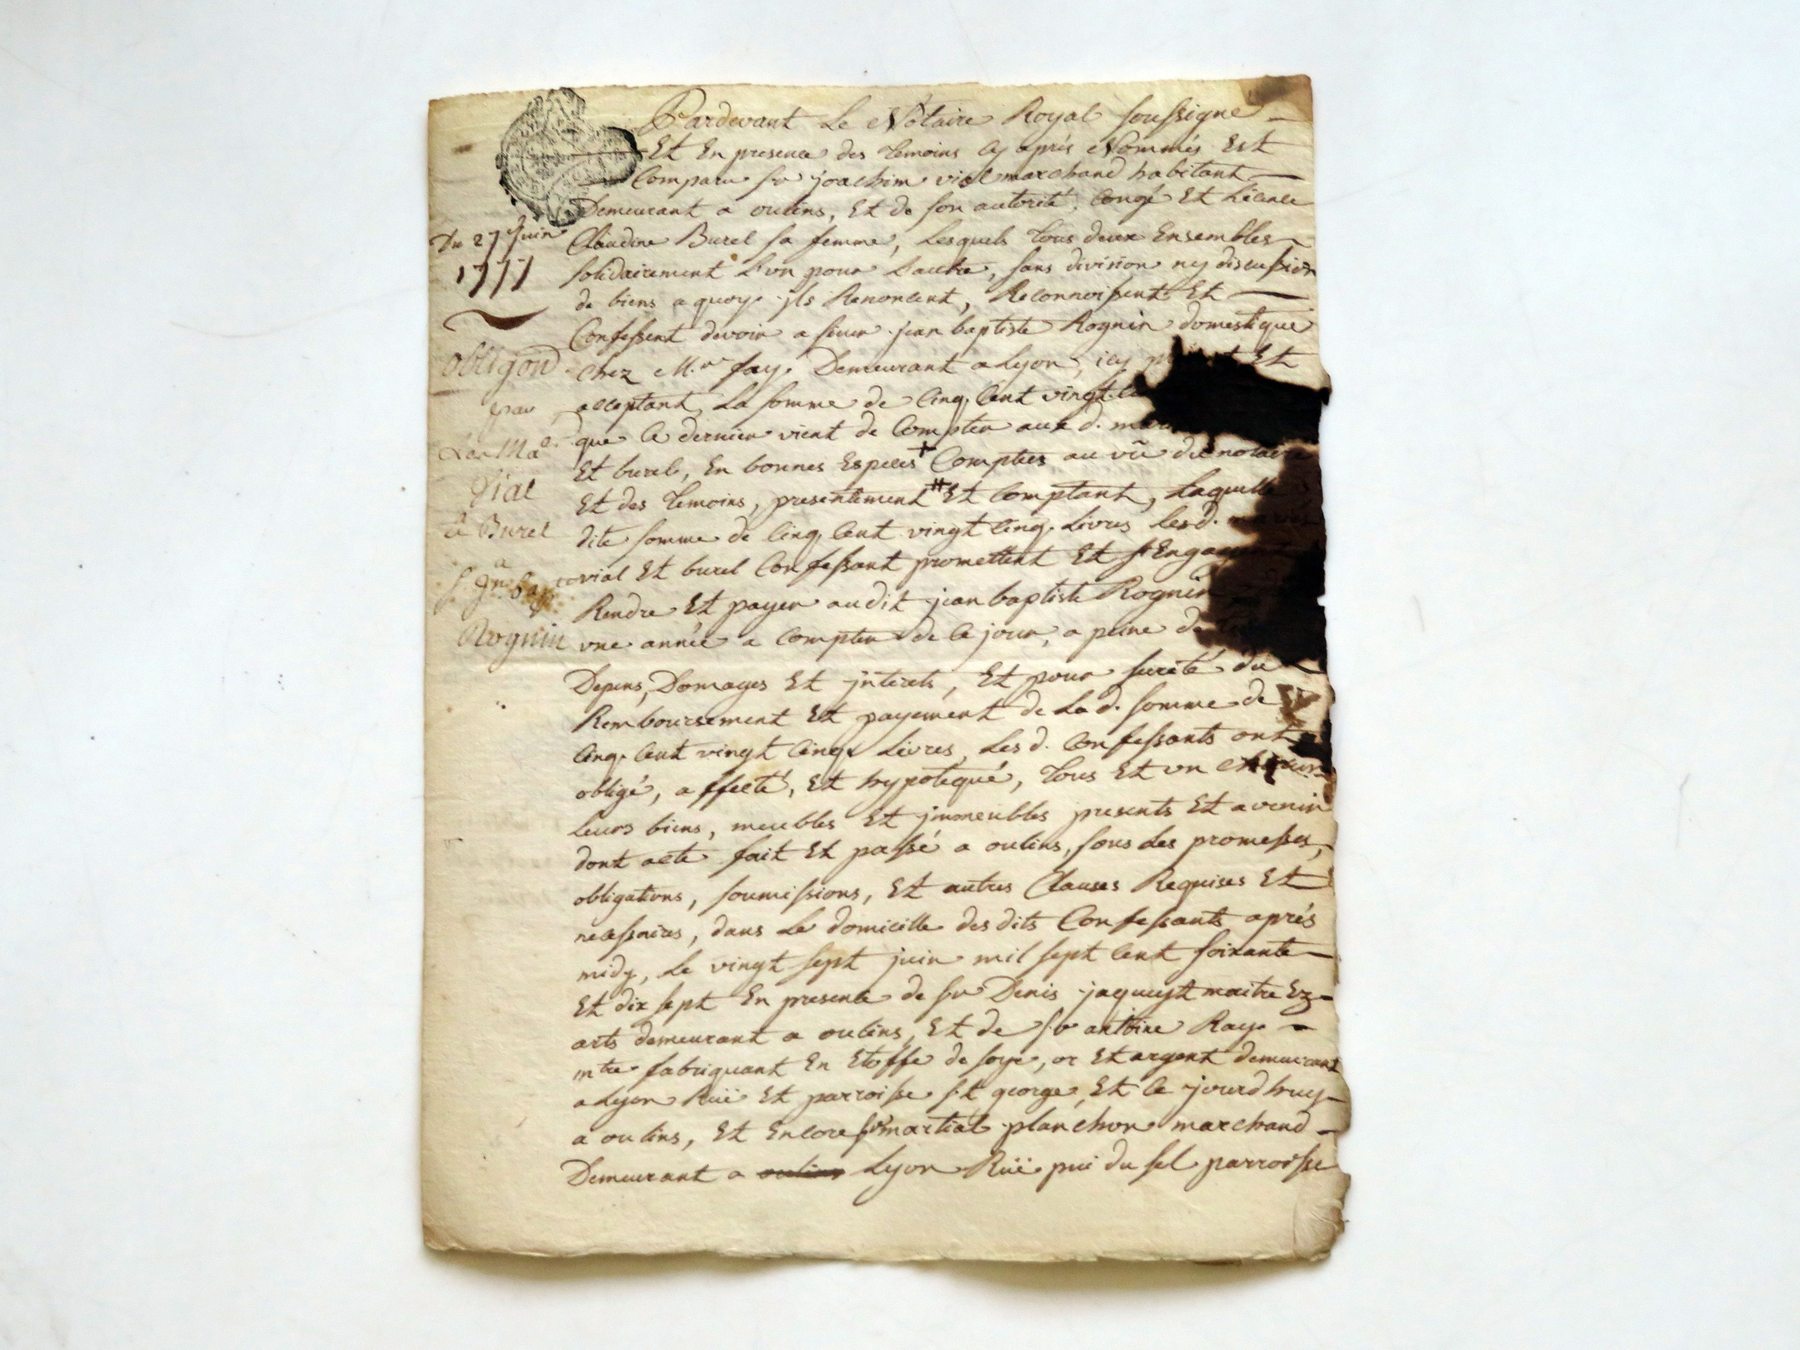 Pardevant Le Notaire Royal soussigné
Et En presence des temoins cy aprés Nommés Est
Comparu sr joachim vial marchand habitant
Demeurant a oulins, Et de son autorité, congé Et Licence
Du 27 Juin
1777
Claudine Burel sa femme, Lesquels tous deux Ensembles
solidairement L'un pour L'autre, sans division ny discussion
de biens a quoy jls Renoncent, Reconnoissent Et
Confessent devoir a sieur jean baptiste Rognin domestique
obligõn
par
Les Ma.
Vial
& Burel
a
sr Jn bapte
Rognin
chez Mr. fay Demeurant a Lyon, icy Et
acceptant, La somme de Cinq Cent vingt
que Ce dernier vient de Compter aux d.
Et burel, En bonnes Especes + Comptées au vû du notaire
Et des temoins, presentement # Et Comptant, Laquelle
dite somme de Cinq Cent vingt Cinq Livres Les d.
vial Et burel Confessant promettent Et s'Engagent
Rendre Et payer audit jean baptiste Rognin
une année a Compter de Ce jour, a peine de
Depens, Domages Et jnterets, Et pour sureté du
Remboursement Et payement de La d. somme de
Cinq Cent vingt Cinq Livres, Les d. Confessants ont
obligé, affecté, Et hypotequé, tous Et un chacun
Leurs biens, meubles Et jmmeubles presents Et avenir
dont acte fait Et passé a oulins, sous Les promesses,
obligations, soumissions, Et autres Clauses Requises Et
necessaires, dans Le domicille des dits Confessants aprés
midy, Le vingt sept juin mil sept cent soixante
Et dix sept En presence de sr Denis jaqueyt maitre Ez
arts demeurant a oulins, Et de sr antoine Ray
mtre fabriquant En Etoffe de soye, or Et argent demeurant
a Lyon Ruë Et parroisse st george, Et Ce jourdhuy
a oulins, Et Encore sr martial planchon marchand
Demeurant a oulins Lyon Ruë pui du sel parroisse